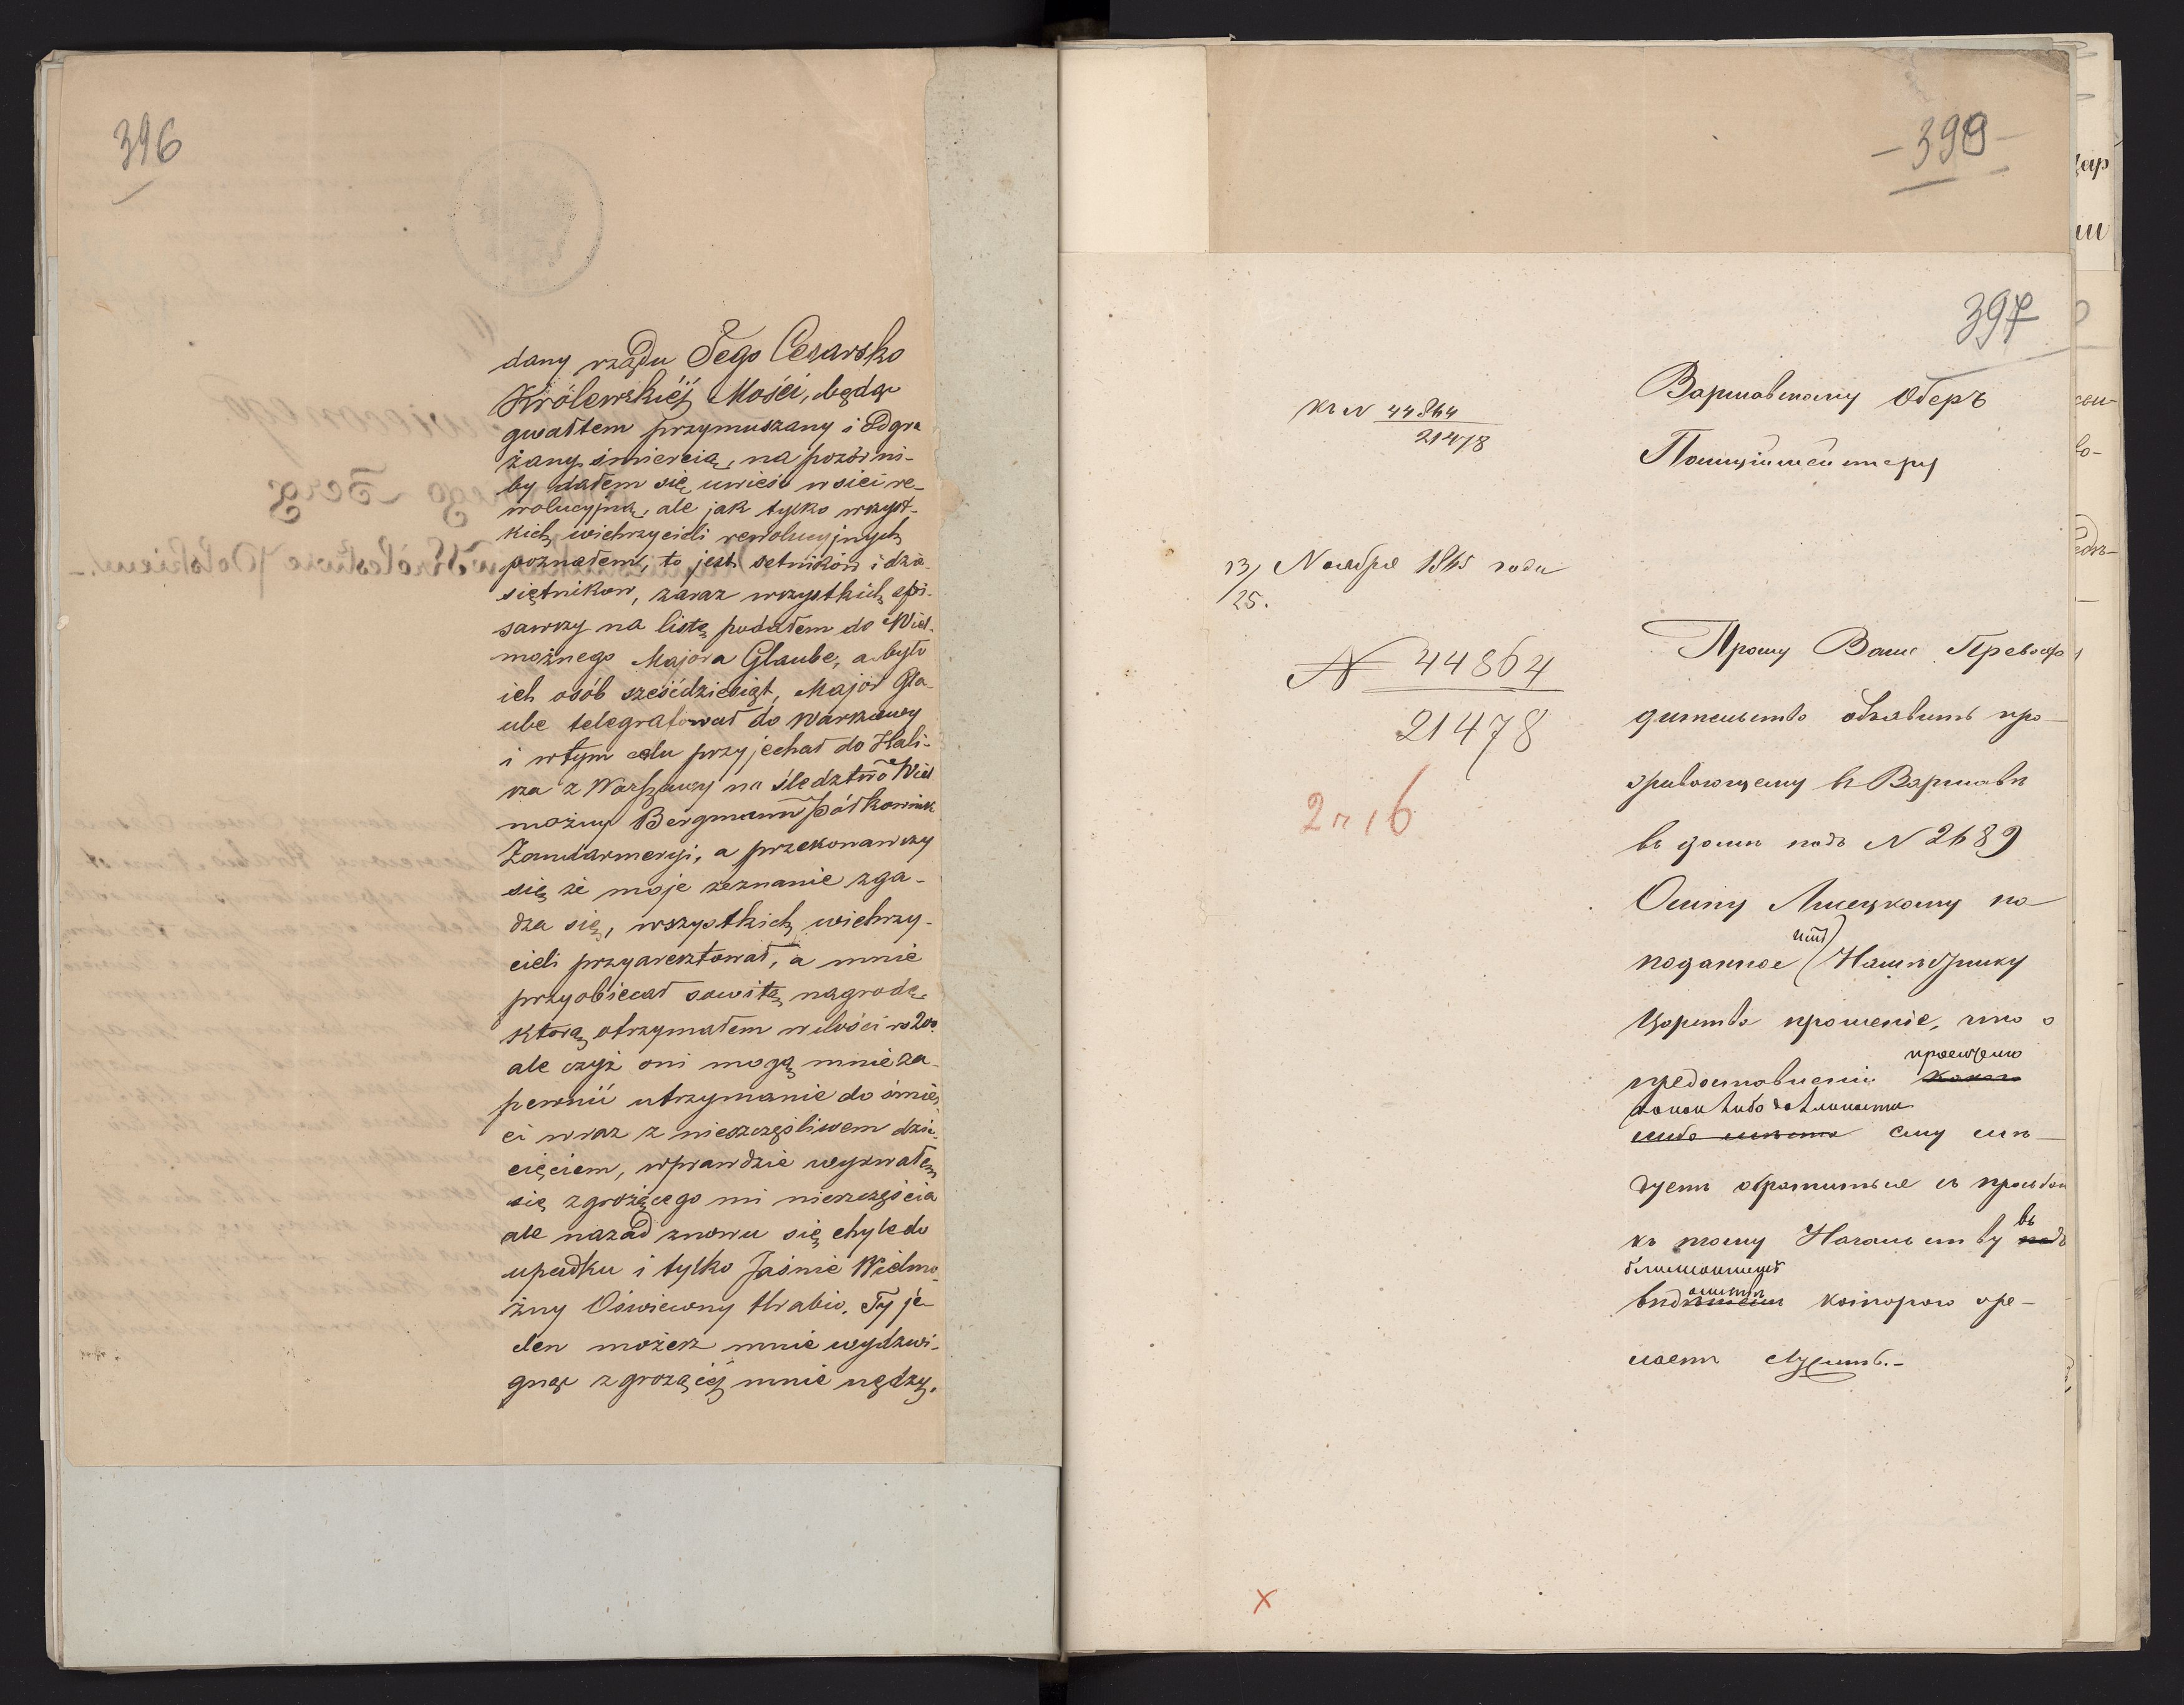 396
dany rządu Jego Cesarsko
Królewskiéj Mości, będąc
gwałtem przymuszany i odgra
żany śmiercią, na pozór ni-
by dałem się uwieść w sieci re-
wolucyjną, ale jak tylko wszyst-
kich wichrzycieli rewolucyjnych
poznałem, to jest setników i dzie-
siętnikow, zaraz wszystkich spi-
sawszy na listę podałem do Wiel-
możnego Majora Glaube, a było
ich osób sześćdziesiąt, Major Gla-
ube telegrafował do Warszawy
i w tym celu przyjechał do Kali-
sza z Warszawy na śledztwo Wiel
możny Bergmann Półkownik
Żandarmeryi, a przekonawszy
się że moje zeznanie zga-
dza się, wszystkich wichrzy-
cieli przyaresztował, a mnie
przyobiecał sowitą nagrodę,
którą otrzymałem w ilości rs 200
ale czyż oni mogą mnie za-
pewnić utrzymanie do śmier
ci wraz z nieszczęśliwem dzie-
cięciem, wprawdzie wyrwałem
się zgrożącego mi nieszczęścia
ale nazad znowu się chylę do
upadku i tylko Jaśnie Wielmo-
żny Oświecony Hrabio. Ty je-
den możesz mnie wydzwi-
gnąć z grożącéj mnie nędzy.
-399-
397
Варшавскому Оберъ
Полиціймейстеру
къ N 44864
21478
13/25. Ноября 1865 года
N 44864
21478
2 г 16
Прошу Ваше Превосхо
дительство объявить про-
живающему въ Варшавѣ
въ домѣ подъ N 2689
Осипу Лисецкому на
поданное имъ Намѣстнику
Царства прошеніе, что о
предоставленіи просимаго
какой либо должности
либо мѣста ему слѣ-
дуетъ обратиться съ просьбою
къ тому Начальству въ
вѣдомствѣ котораго же-
лаетъ служить.-
x